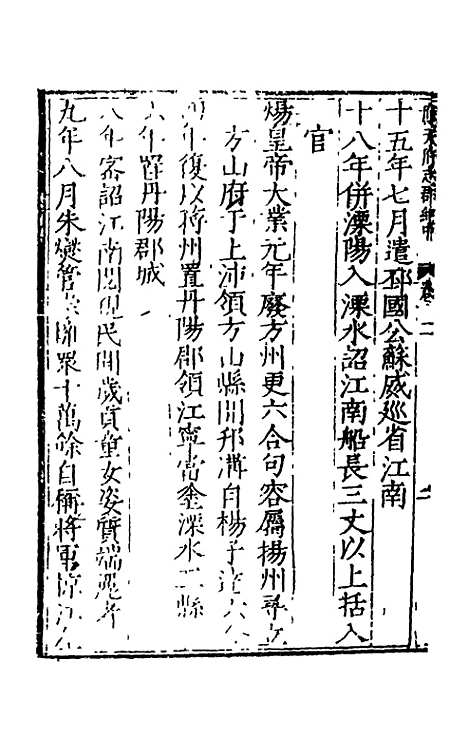 十五年七月遣邳國公蘇威廵省江南
十八年併溧陽入溧水詔江南船長三丈以上括入
官
煬皇帝大業元年廢方州更六合句容屬揚州尋
方山府于上沛領方山縣開邗溝自楊子達六合
年復以蔣州置丹陽郡領江寧當塗溧水三縣
六年築丹陽郡城
八年密詔江南閲視民間歲貢童女姿質端麗者
九年八月朱燮管衆十萬餘自稱將軍